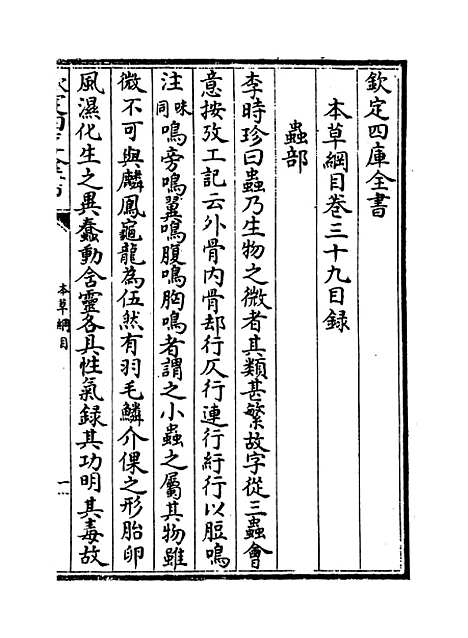 欽定四庫全書
本草綱目卷三十九目録
蟲部
李時珍曰蟲乃生物之微者其類甚繁故字從三蟲會
意按攷工記云外骨内骨却行仄行連行紆行以脰鳴
注味同鳴旁鳴翼鳴腹鳴胸鳴者謂之小蟲之屬其物雖
微不可與麟鳳龜龍為伍然有羽毛鱗介倮之形胎卵
風濕化生之異蠢動含靈各具性氣録其功明其毒故
本草綱目
一